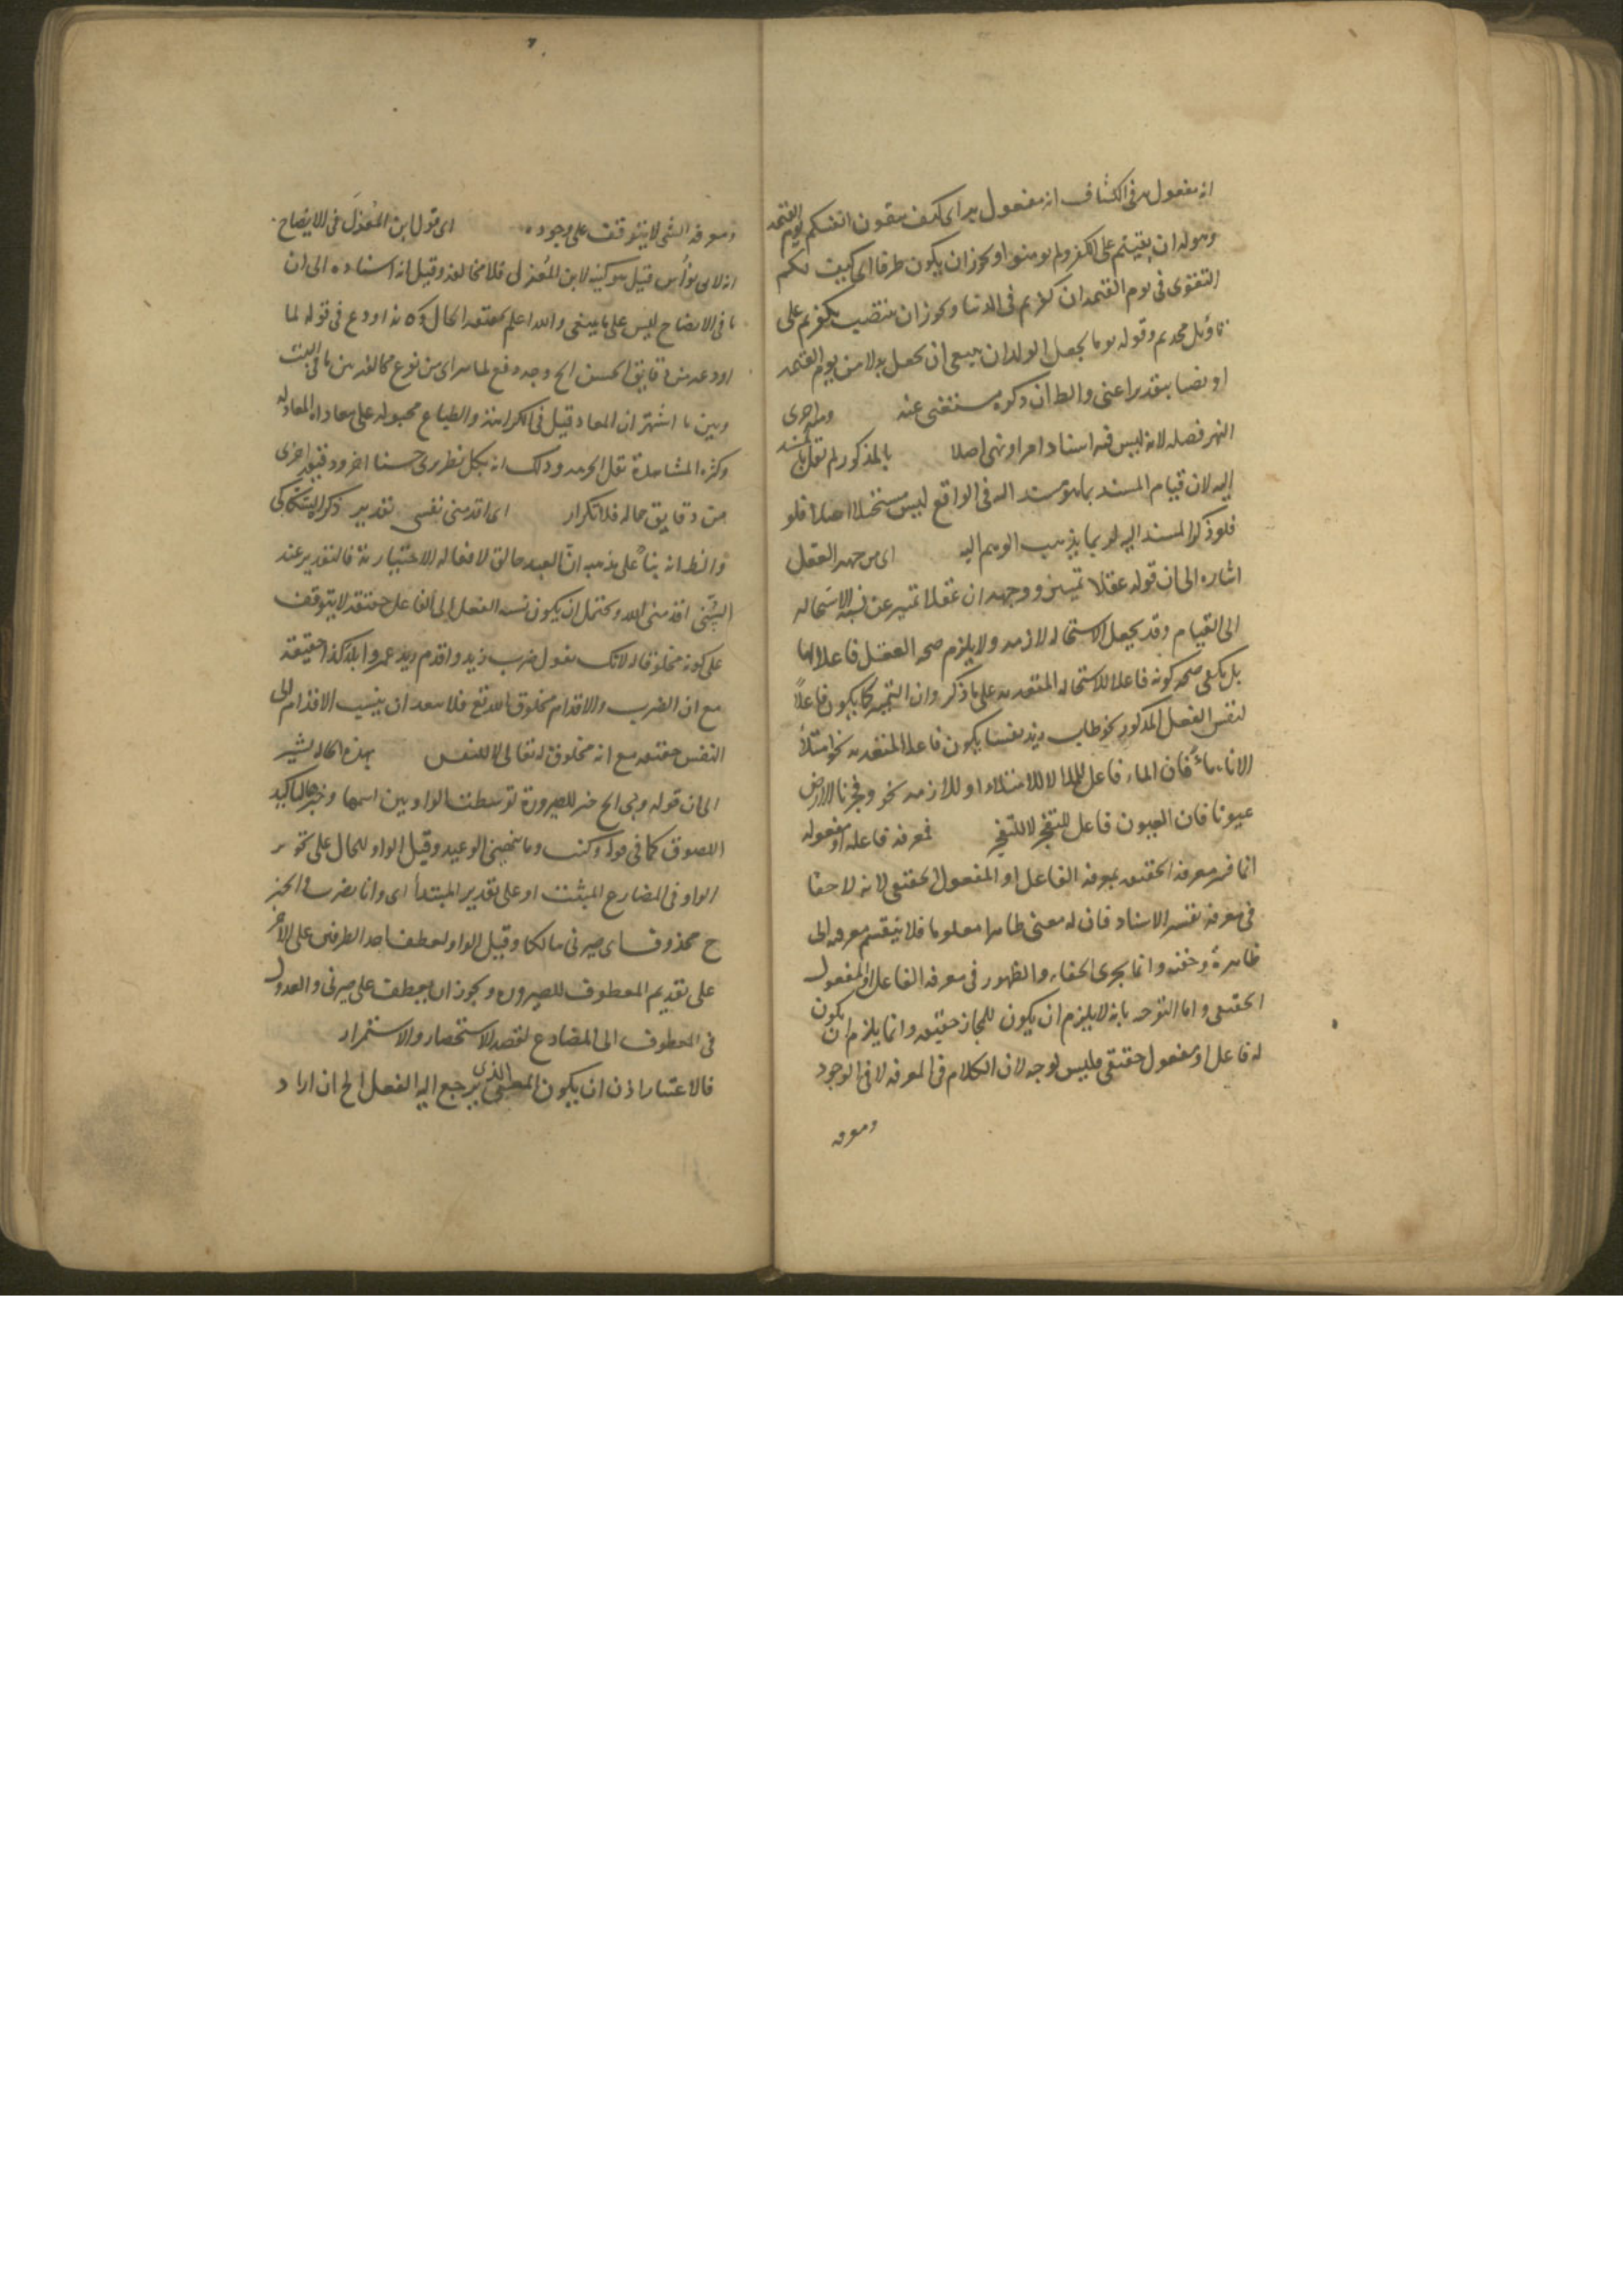 انه مفعول به فى الكشاف انه مفعول به اى كيف تتقون انفسكم يوم القيمة
وهوله ان بقيتم على الكفر ولم تومنوا ويجوز ان يكون ظرفا اى كيف لكم
التقوى فى يوم القيمة ان كفرتم فى الدنيا ويجوز ان ينتصب بكفرتم على
تاويل جحدتم وقوله يوما يجعل الولدان ينبغى ان يجعل بدلا من يوم القيمة
او نصبا بتقدير اعنى والظ ان ذكره مستغنى عنه
النهر فصله لانه ليس فيه اسناد امر او نهى اصلا بالمذكور ولم يقل بالمسند
اليه لان قيام المسند بما هو مسند اليه فى الواقع ليس مستحيلا اصلا فلو
فلو ذكر المسند اليه لربما يذهب الوهم اليه اى من جهة العقل
اشارة الى ان قوله عقلا تمييز ووجهه ان عقلا تمييز عن نسبة الاستحالة
الى القيام وقد يجعل الاستحالة لازمه ولا يلزم صحة العقل فاعلا لها
بل يكفى صحة كونه فاعلا للاستحالة المتعدية على ما ذكر وان التمييز كما يكون فاعلاً
لنفس الفعل المذكور نحو طاب زيد نفسا يكون فاعلا لمتعديه نحو امتلأ
الاناء ماءً فان الماء فاعل للملا لا للامتلاء او للازمه نحو وفجرنا الارض
عيونا فان العيون فاعل للتفجر لا للتفجير فمعرفة فاعله او مفعوله
انما فسر معرفة الحقيقة بمعرفة الفاعل او المفعول الحقيقى لانه لا خفا
فى معرفة نفس الاسناد فان له معنى ظاهرا معلوما فلا ينقسم معرفته الى
ظاهرة وخفية وانما يجرى الخفاء والظهور فى معرفة الفاعل او المفعول
الحقيقى واما التوجيه بانه لا يلزم ان يكون للمجاز حقيقة وانما يلزم ان يكون
له فاعل او مفعول حقيقى فليس بوجه لان الكلام فى المعرفة لا فى الوجود
ومعرفة
ومعرفة الشى لا يتوقف على وجوده اى قول ابن المُعَذل فى الايضاح
انه لابى نواس قيل هو كنية لابن المُعَذل فلا مخالفة وقيل انه اسناده الى ابن
ما فى الايضاح ليس على ما ينبغى والله اعلم بحقيقة الحال اودع فى قوله لما
اودعه من دقايق الحسن الخ وجه دفع لما يترااى من نوع مخالفة بين ما فى البيت
وبين ما اشتهر ان المعاد قيل فى الكراهة والطباع مجبولة على معاداة المعاد
وكثرة المشاهدة تقل الحرمة وذلك انه بكل نظر يرى حسنا اخر ودقيقة اخرى
من دقايق جماله فلا تكرار اى اقدمنى نفسى تقدير ذكره السكاكى
والظ انه بناءً على مذهبه انّ العبد خالق لافعاله الاختيارية فالتقدير عند
السُّنى اقدمنى الله ويحتمل ان يكون نسبة الفعل الى الفاعل حقيقة لا يتوقف
على كونه مخلوقا له لانك تقول ضرب زيد واقدم زيد عمروا بلد كذا حقيقة
مع ان الضرب والاقدام مخلوق لله تع فلا يبعد ان ينسب الاقدام الى
النفس حقيقة مع انه مخلوق له تعالى لا للنفس بهذه الحالة يشير
الى ان قوله وبى الخ خبر للصيرورة توسطت الواو بين اسمها وخبرها لتاكيد
اللصوق كما فى قوله وكنت وما ينهنهنى الوعيد وقيل الواو للحال على تجويز
الواو فى المضارع المثبت او على تقدير المبتدأ اى وانا يضرب فالخبر
ح محذوف اى صيرنى هالكا وقيل الواو لعطف احد الظرفين على الاخر
على تقديم المعطوف للضرورة ويجوز ان يعطف على صيرنى والعدول
فى المعطوف الى المضارع لقصد الاستحضار والاستمرار
فالاعتبار اذن ان يكون المعنى الذى يرجع اليه الفعل الخ ان اراد